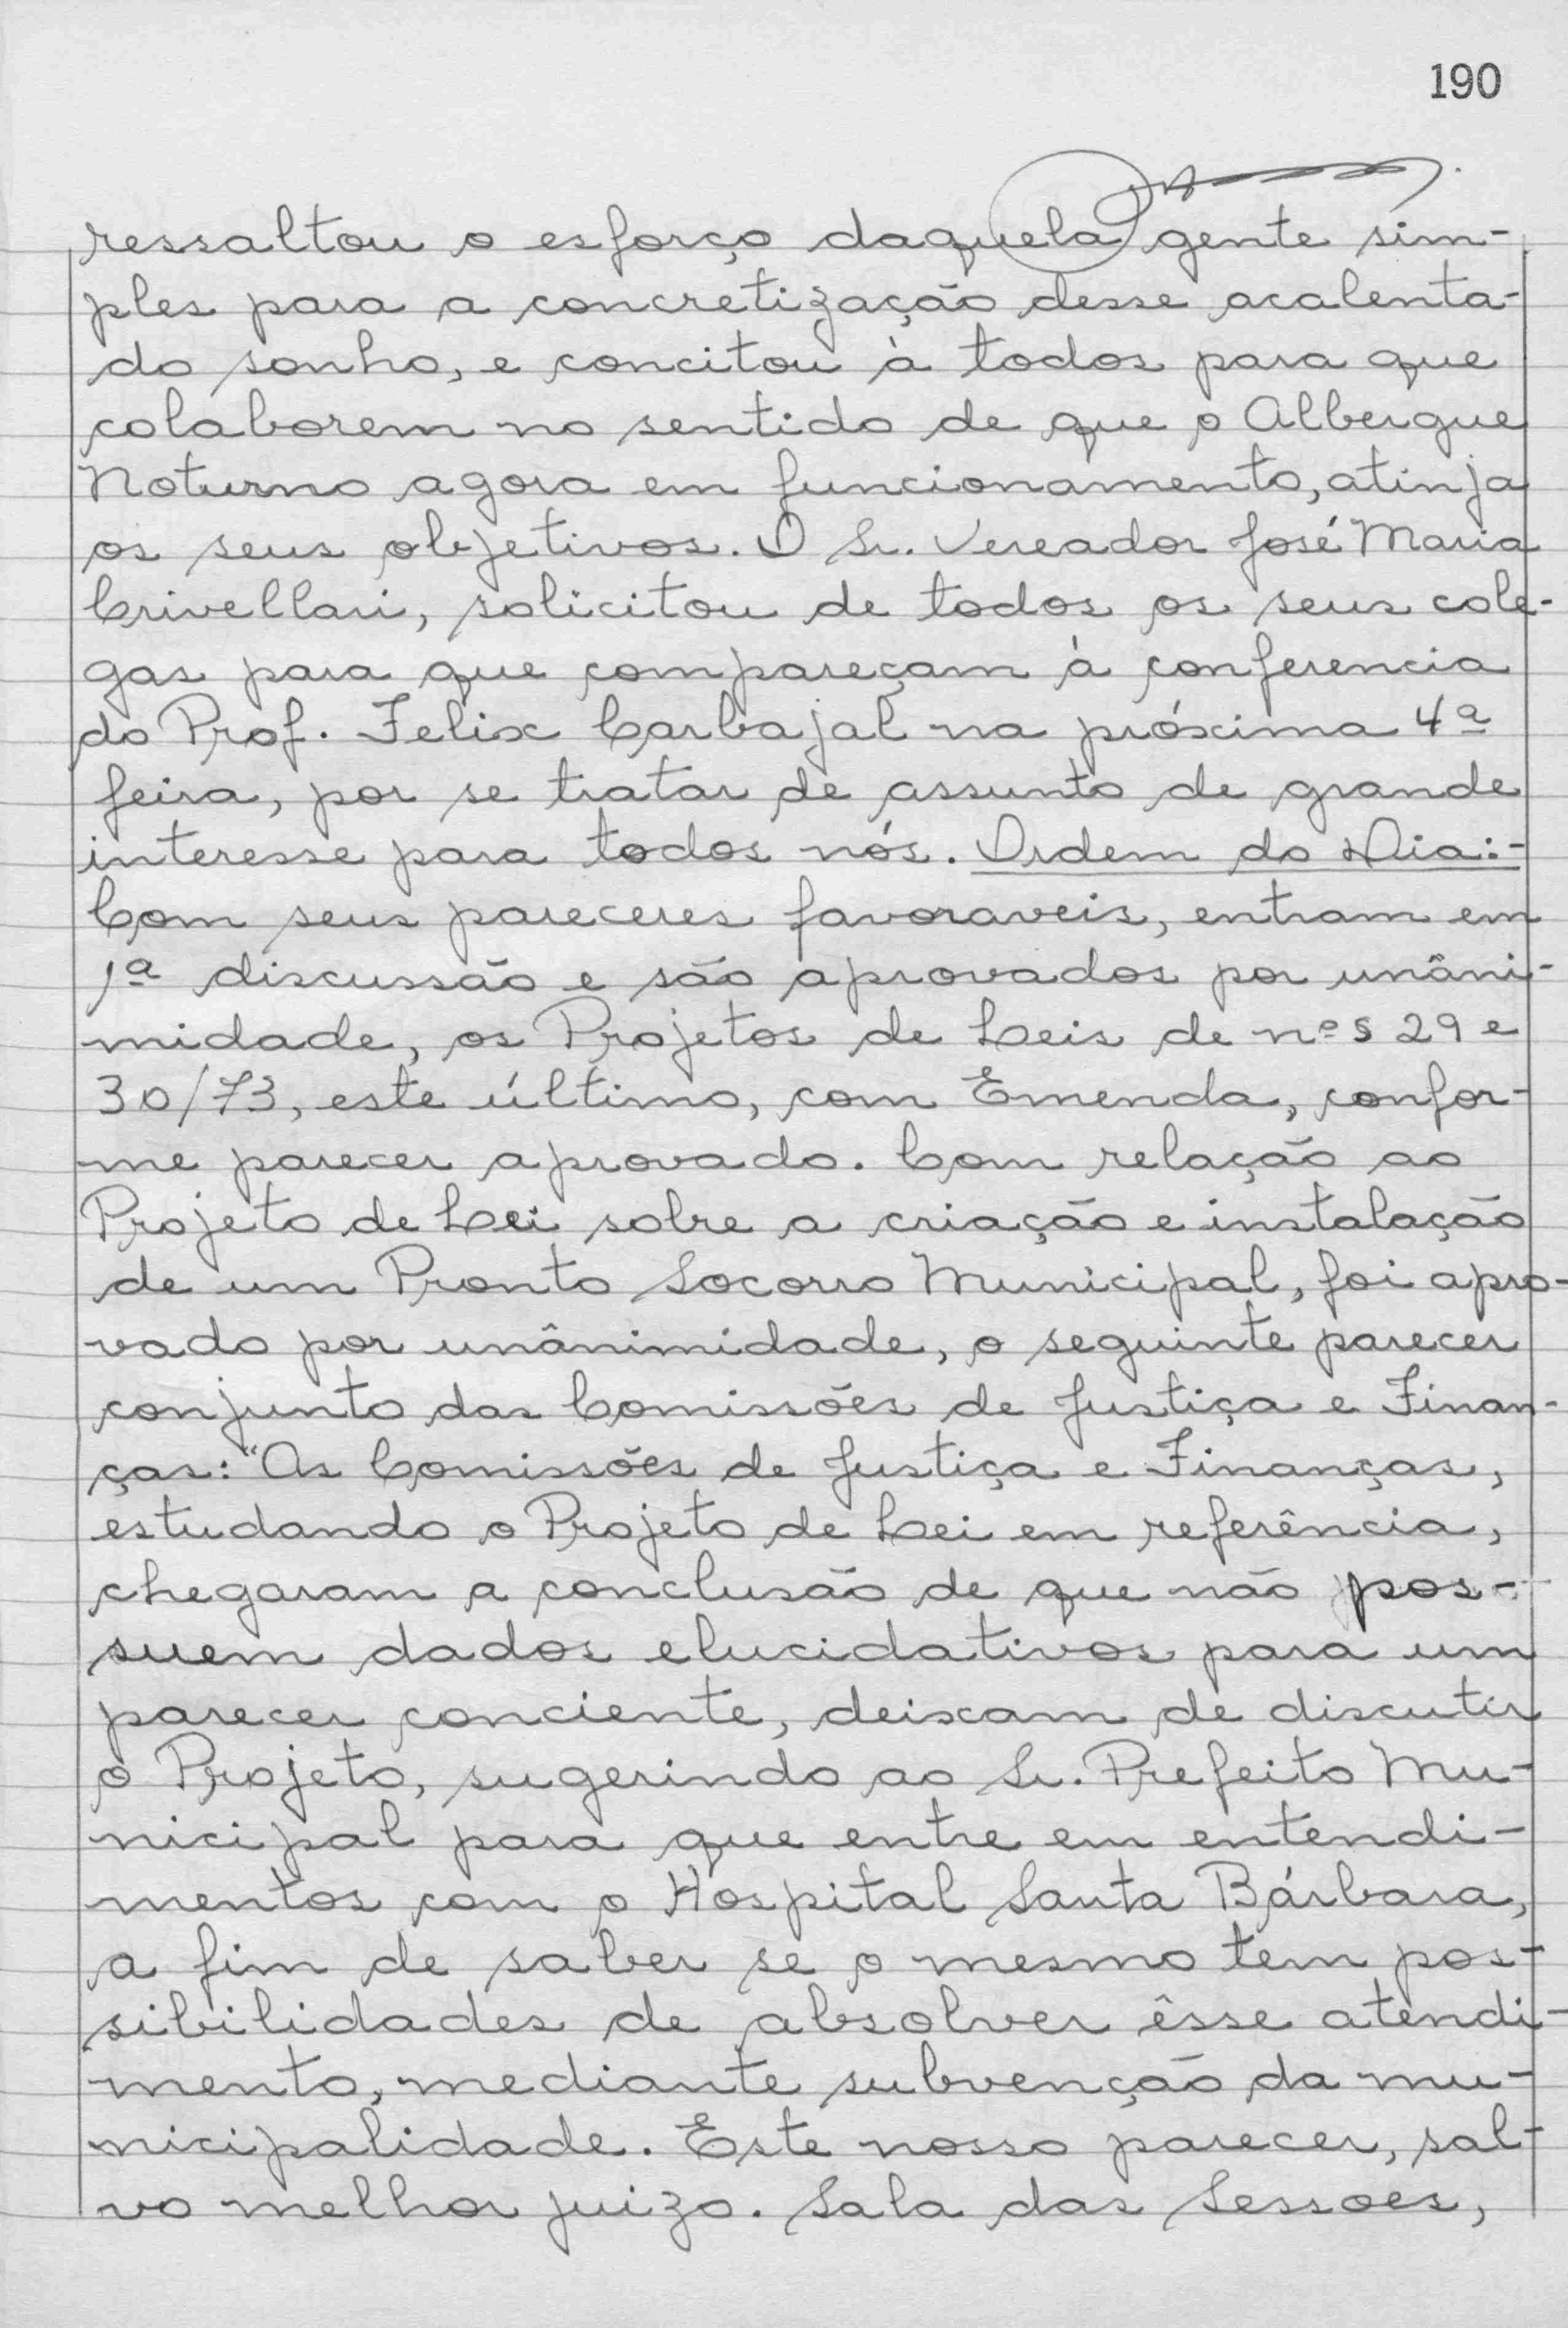 190
ressaltou o esforço daquela gente sim-
ples para a concretização desse acalenta-
do sonho, e concitou à todos para que
colaborem no sentido de que o Albergue
Noturno agora em funcionamento, atinja
os seus objetivos. O Sr. Vereador José Maria
Crivellari, solicitou de todos os seus cole-
gas para que compareçam à conferencia
do Prof. Felix Carbajal na próxima 4ª
feira, por se tratar de assunto de grande
interesse para todos nós. Ordem do Dia:-
Com seus pareceres favoraveis, entram em
1ª discussão e são aprovados por unâni-
midade, os Projetos de Leis de nºs 29 e
30/73, este último, com Emenda, confor-
me parecer aprovado. Com relação ao
Projeto de Lei sobre a criação e instalação
de um Pronto Socorro Municipal, foi apro-
vado por unânimidade, o seguinte parecer
conjunto das Comissões de Justiça e Finan-
ças: "As Comissões de Justiça e Finanças,
estudando o Projeto de Lei em referência,
chegaram a conclusão de que não pos-
suem dados elucidativos para um
parecer conciente, deixam de discutir
o Projeto, sugerindo ao Sr. Prefeito Mu-
nicipal para que entre em entendi-
mentos com o Hospital Santa Bárbara,
a fim de saber se o mesmo tem pos-
sibilidades de absolver êsse atendi-
mento, mediante subvenção da mu-
nicipalidade. Este nosso parecer, sal-
vo melhor juizo. Sala das Sessoes,